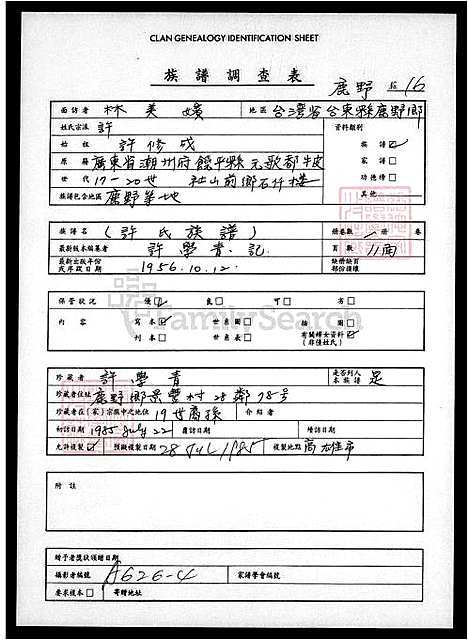 CLAN GENEALOGY IDENTIFICATION SHEET
族譜調查表
鹿野 16
面訪者 林美 地區 台灣省台東縣鹿野鄉
姓氏宗派 許 資料類別
始祖 許修成 族譜 ☑
原籍 廣東省潮州府饒平縣元歌都 家譜 □
世代 17-20世 社山前鄉石仔樓 功德榜 □
族譜包含地區 鹿野等地 其他
族譜名 (許氏族譜) 冊卷數 1 冊 卷
最新版本編纂者 許學青 記 頁數 11面
最新出版年份或序跋日期 1956.10.12. 缺冊缺頁部份損壞
保管狀況 優 ☑ 良 □ 可 □ 劣 □
內容 寫本 ☑ 世系圖 □ 插圖 □
刊本 □ 世系表 □ 有關婦女資料 ☑ (非僅姓氏)
FamilySearch
珍藏者 許學青 是否列入本族譜 是
珍藏者住址 鹿野鄉景豐村28鄰78号
珍藏者在(家)宗族中之地位 19世裔孫 介紹者
初訪日期 1985 July 22 覆訪日期 增訪日期
允許複製 ☑ 預擬複製日期 28 Jul 1985 複製地點 高雄市
附註
贈予者獎狀須贈日期
攝影者編號 A626-4 家譜學會編號
要求複本 □ 寄贈地址